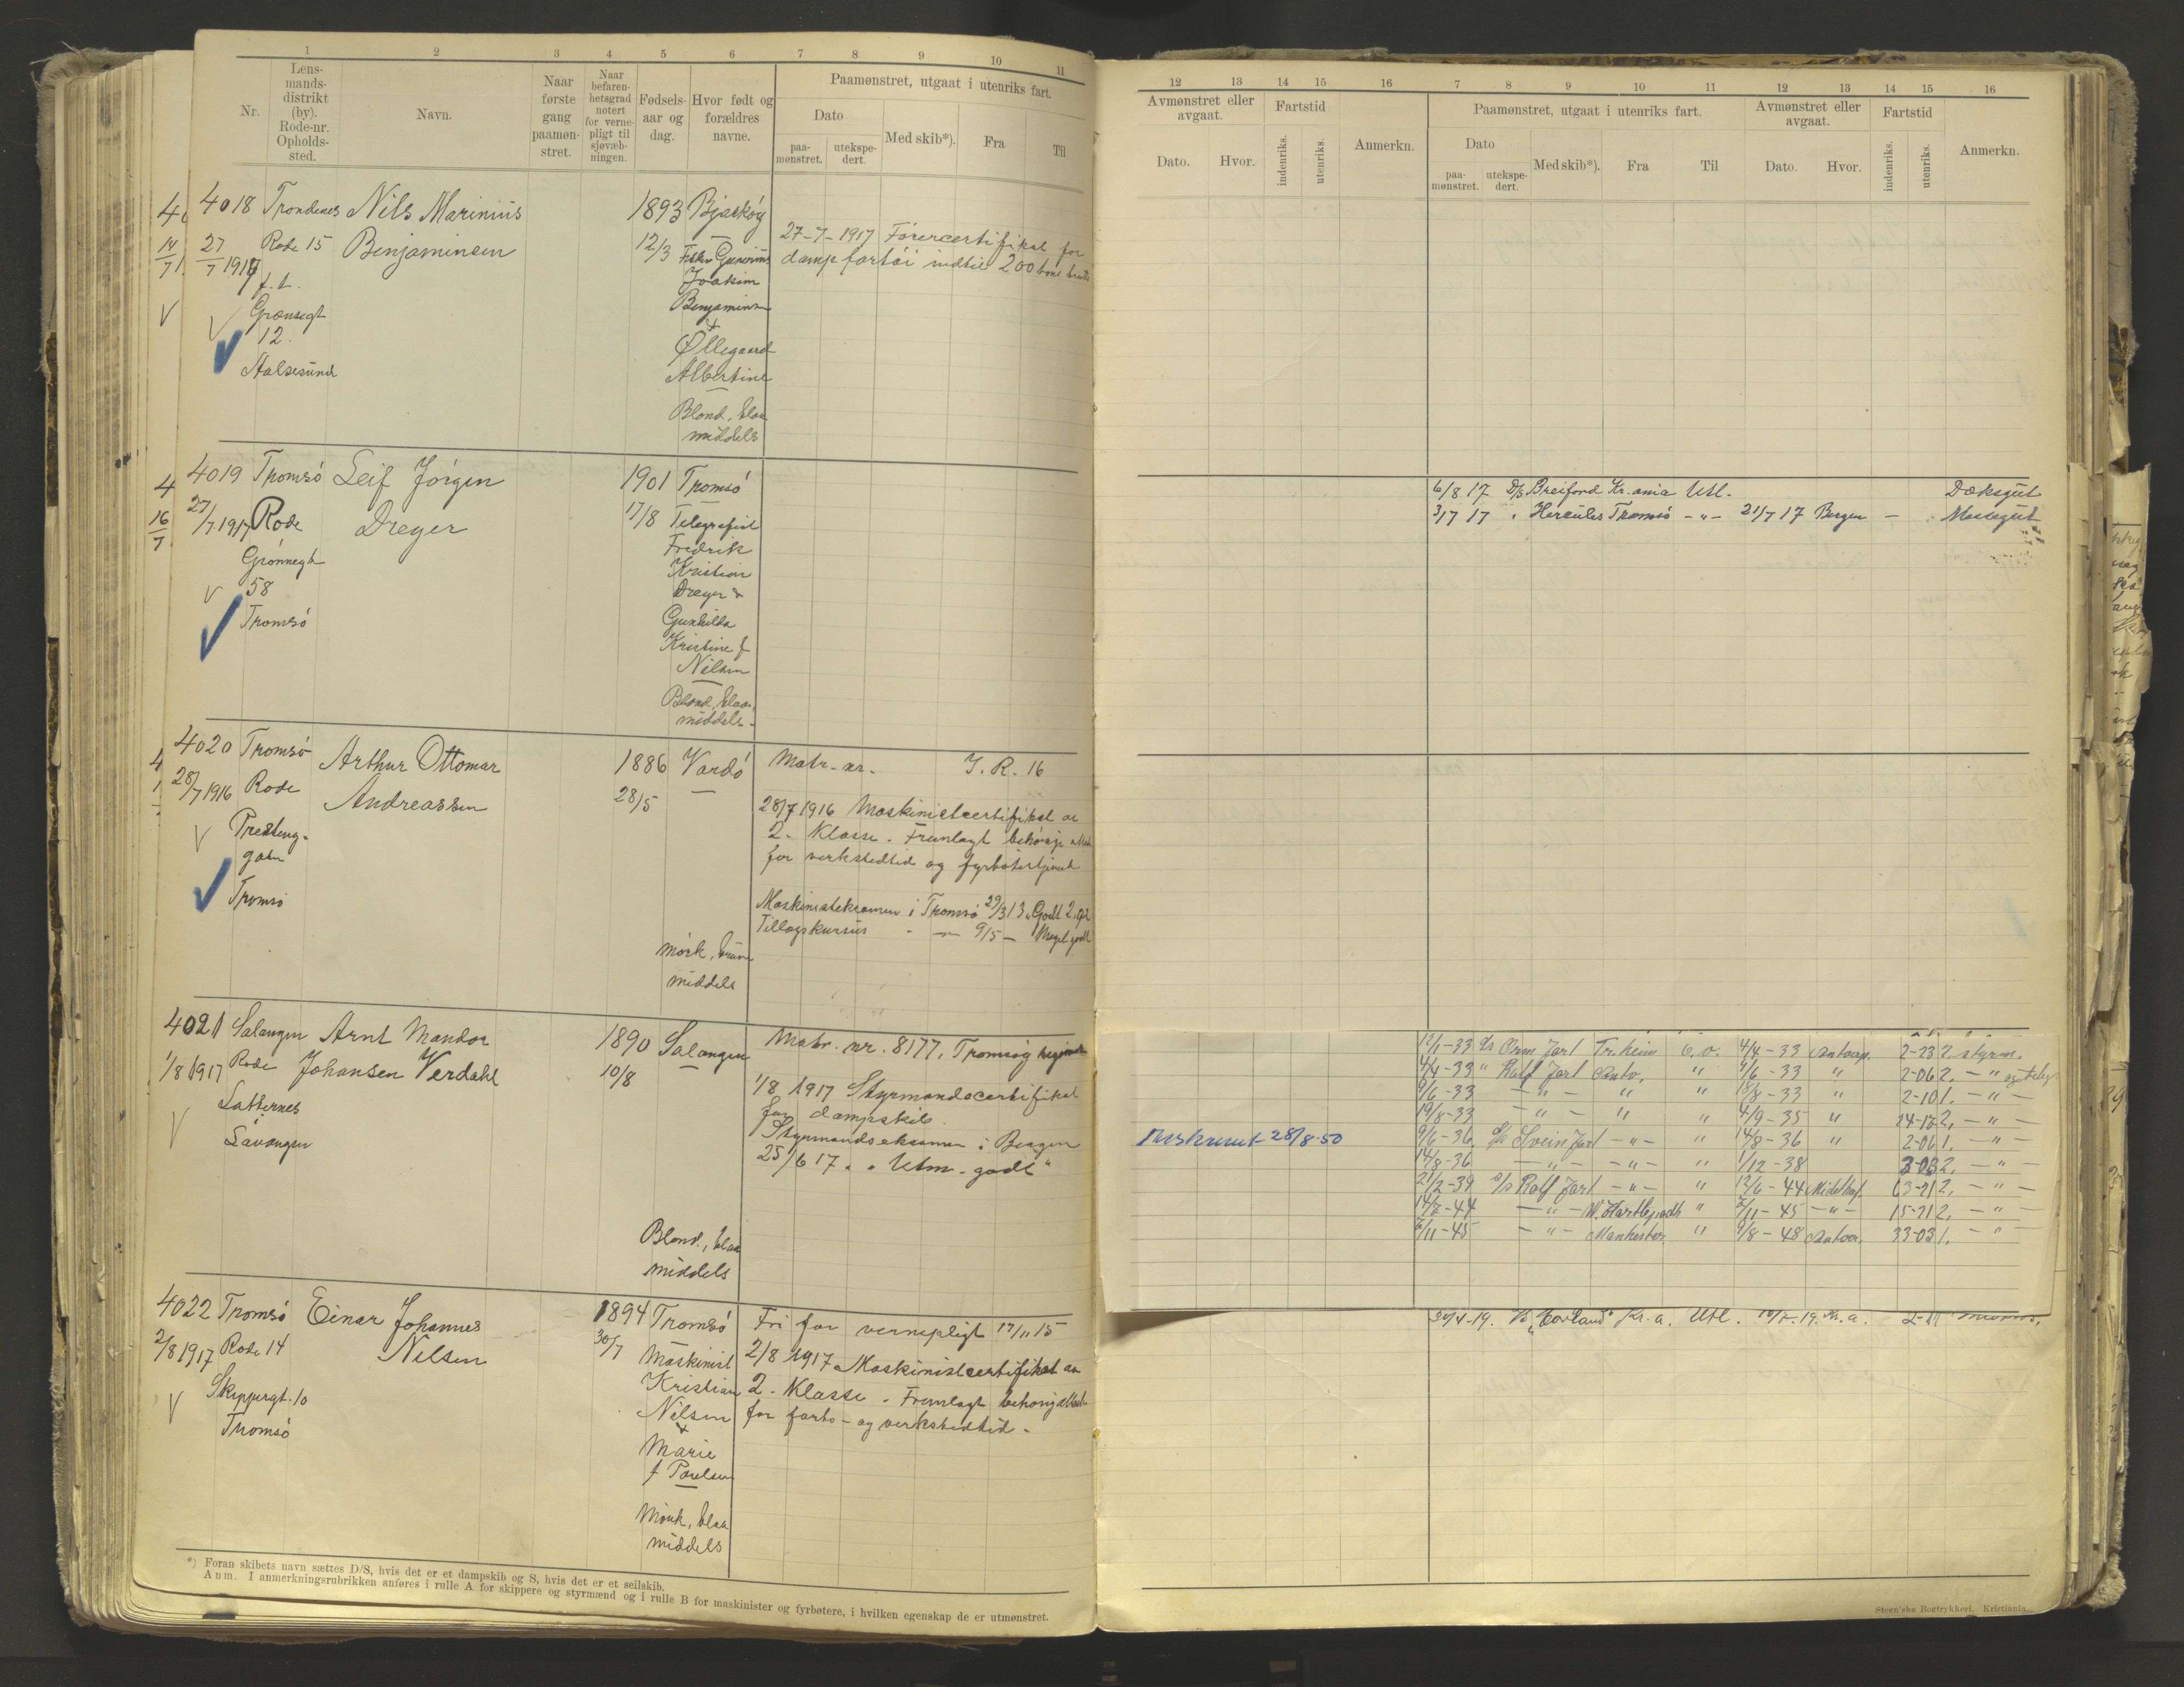 1 2 3 4 5 6 7 8 9 10 11
Nr.
Lens-
mands-
distrikt
(by).
Rode-nr.
Opholds-
sted.
Navn.
Naar
første
gang
paamøn-
stret.
Naar
befaren-
hetsgrad
notert
for verne-
pligt til
sjøvæb-
ningen.
Fødsels-
aar og
dag.
Hvor født og
forældres
navne.
Paamønstret, utgaat i utenriks fart.
Dato
paa-
mønstret.
utekspe-
dert.
Med skib*).
Fra
Til
4018 Trondenes Nils Marinius 1893 Bjarköy
27/7 1917 Rode 15 Benjaminsen 12/3
f. t.
Grønsegt
12.
Aalesund
Joakim
Benjaminsen
&
Øllegaard
Albertine
Blond, blaa
middels
27-7-1917 Förercertifikat for
damp fartöi indtil 200 tons brutto
4019 Tromsö Leif Jörgen 1901 Tromsö
27/7 1917 Rode Dreyer 17/8 Telegrafist
Grönnegt
58
Tromsö
Fredrik
Kristian
Dreyer &
Gunhilda
Kristine f
Nilsen
Blond, blaa
middels.
4020 Tromsö Arthur Ottomar 1886 Vardö
28/7 1916 Rode Andreassen 28/5
Presteng-
gaten
Tromsö
Matr. nr. I. R. 16
28/7 1916 Maskinistcertifikat av
2. Klasse. Fremlagt behörig attest
for verkstedtid og fyrbötertjeneste
Maskinisteksamen i Tromsö 29/3 13 "Godt 2, 92
Tillægskursus - - 9/5 - Meget godt
mörk, brun
middels
4021 Salangen Arnt Mandor 1890 Salangen
1/8 1917 Rode Johansen Verdahl 10/8
Lavangen
Matr. nr. 8177. Tromsøy
1/8 1917 Styrmandscertifikat
for dampskib.
Styrmandseksamen i Bergen
25/6 17. "Utm. godt"
Blond., blaa
middels
4022 Tromsö Einar Johannes 1894 Tromsö
2/8 1917 Rode 14 Nilsen 30/7 Maskinist
Skippergt. 10
Tromsö
Kristian
Nilsen
&
Marie
f Paulsen
Mörk, blaa
middels
Fri for vernepligt 17/11 15
2/8 1917 Maskinistcertifikat av
2. Klasse. Fremlagt behörig attest
for farts- og verkstedtid.
*) Foran skibets navn sættes D/S, hvis det er et dampskib og S, hvis det er et seilskib.
Anm. I anmerkningsrubrikken anføres i rulle A for skippere og styrmænd og i rulle B for maskinister og fyrbøtere, i hvilken egenskap de er utmønstret.
12 13 14 15 16 7 8 9 10 11 12 13 14 15 16
Avmønstret eller
avgaat.
Dato. Hvor.
Fartstid
indenriks. utenriks.
Anmerkn.
Paamønstret, utgaat i utenriks fart.
Dato
paa-
mønstret.
utekspe-
dert.
Med skib*). Fra Til
Avmønstret eller
avgaat.
Dato. Hvor.
Fartstid
indenriks. utenriks.
Anmerkn.
6/8 17 D/S Breifond Kr.ania Utl. Dæksgut
3/7 17 " Hercules Tromsö - " - 21/7 17 Bergen - Messegut
12/1-33 D/S Orm Jarl Tr.heim 4/4-33 Antverp. 2-23 2. styrm.
4/4-33 " Ralf Jarl Antv. " 9/6-33 " 2-06 2. - " -
9/6-33 - " - " " 18/8-33 " 2-10 1. - " -
19/8-33 - " - " " 4/9-35 " 24-15 2. - " -
9/6-36 D/S Svein Jarl - " - " 14/8-36 " 2-06 1. - " -
14/8-36 - " - - " - " 1/12-38 2. - " -
21/2-39 D/S Ralf Jarl - " - " 12/6-44 63-21 2. - " -
14/7-44 - " - W. Hartlepool " 7/11-45 - " - 15-21 2. - " -
7/11-45 - " - Manchester " 9/8-48 Antver. 33-03 1. - " -
28/8-50
30/4-19. Kr.a. Utl. Kr.a.
Steen'ske Bogtrykkeri. Kristiania.